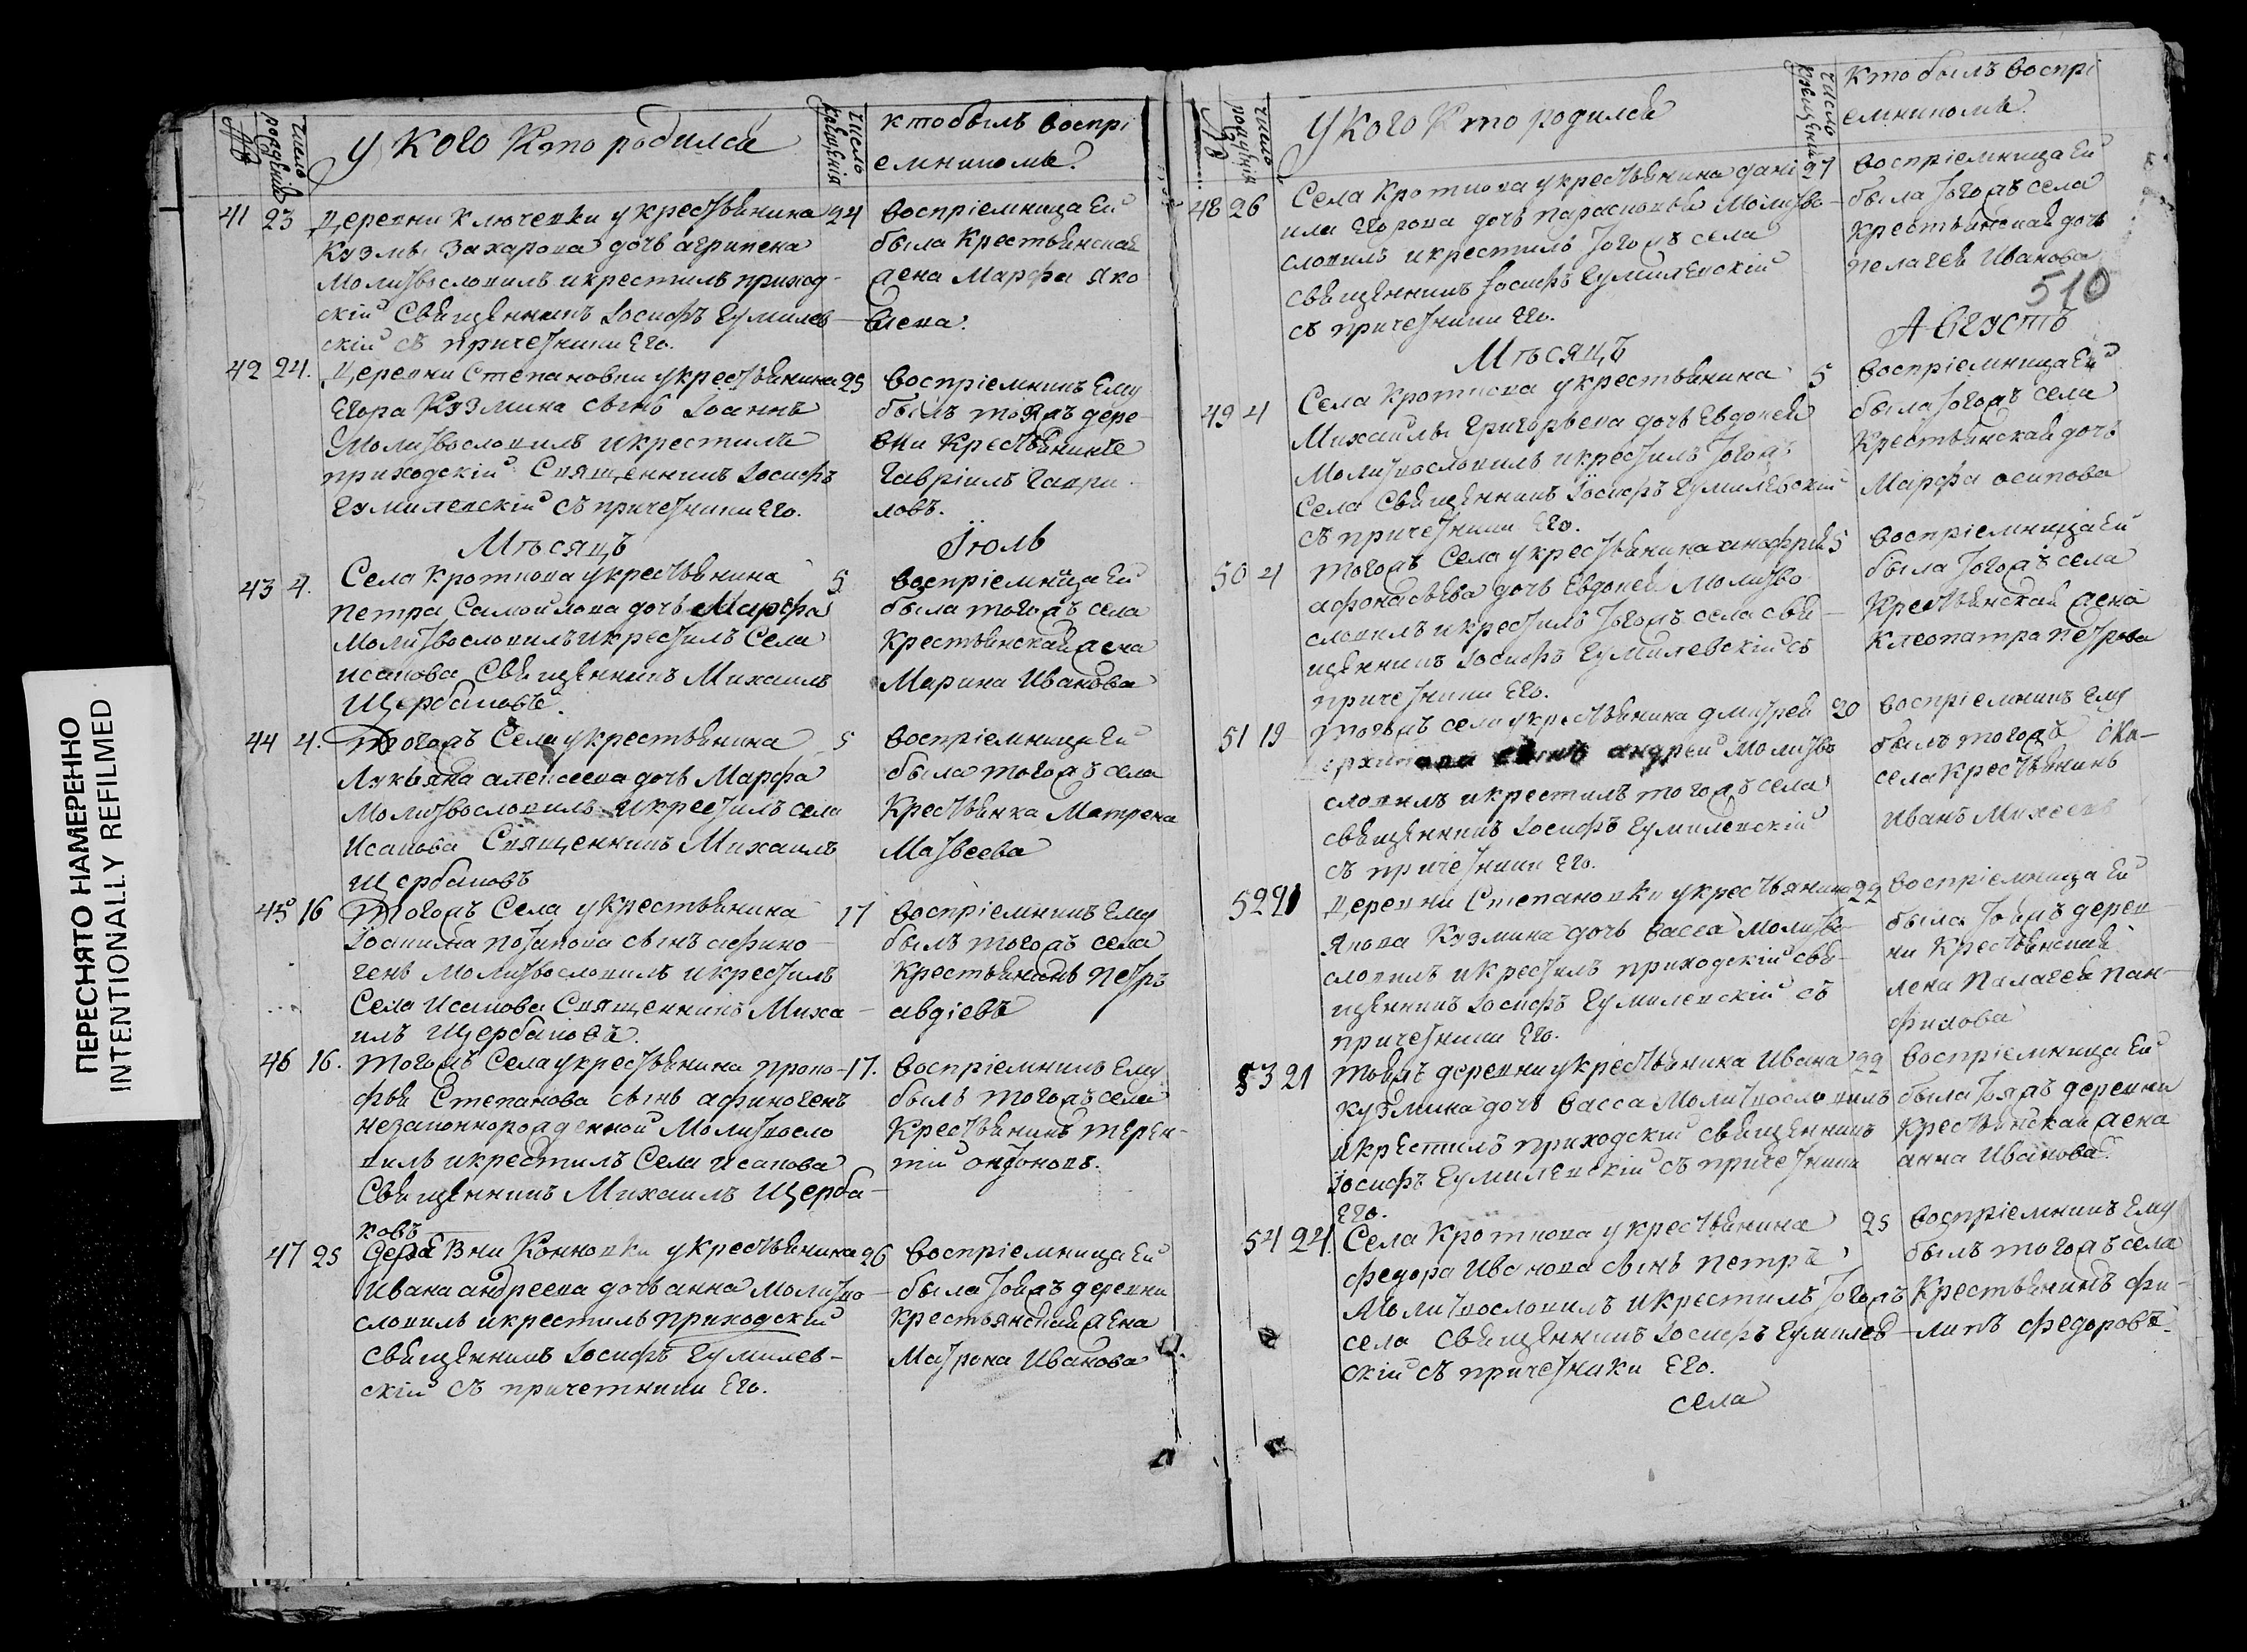 ПЕРЕСНЯТО НАМЕРЕННО
INTENTIONALLY REFILMED
№
Число рожденія
У кого кто родился
Число крещенія
кто былъ воспрі
емникомъ?
41 23 Деревни Ключевки у крестьянина 24
Кузмы Захарова дочь агрипена
Молитвословилъ и крестилъ приход-
скій Священникъ Іосифъ Гумилев-
скій съ причетники Его.
воспріемница Ей
была Крестьянская
жена Марфа Яко
влева.
42 24. Деревни Степановки у крестьянина 25
Егора Кузмина сынъ Іоаннъ
Молитвословилъ и крестилъ
приходскій Священникъ Іосифъ
Гумилевскій съ причетники Его.
воспріемникъ Ему
былъ тояжъ дере-
вни Крестьянинъ
Гавріилъ Гаври-
ловъ.
Мѣсяцъ Іюль
43 4. Села Кроткова у крестьянина 5
петра Самойлова дочь Марфа
Молитвословилъ и крестилъ Села
исакова Священникъ Михаилъ
Щербаковъ.
воспріемница Ей
была тогожъ села
Крестьянская жена
Марина Иванова
44 4. Тогожъ Села у крестьянина 5
Лукьяна алексеева дочь Марфа
Молитвословилъ и крестилъ села
Исакова Священникъ Михаилъ
Щербаковъ
воспріемница Ей
была тогожъ села
Крестьянка Матрена
Матвеева
45 16 Тогожъ Села у крестьянина 17
Іоакима потапова сынъ афино-
генъ Молитвословилъ и крестилъ
Села Исакова Священникъ Миха-
илъ Щербаковъ.
воспріемникъ Ему
былъ тогожъ села
Крестьянинъ петръ
авдіевъ
46 16. Тогожъ Села у крестьянина проко- 17.
фья Степанова сынъ афиногенъ
незаконнорожденной Молитвосло
вилъ и крестилъ Села исакова
Священникъ Михаилъ Щерба-
ковъ
воспріемникъ Ему
былъ тогожъ села
Крестьянинъ терен-
тій
47 25 деревни у крестьянина 26
Ивана андреева дочь анна Молитво-
словилъ и крестилъ приходскій
священникъ Іосифъ Гумилев-
скій съ причетники Его.
воспріемница Ей
была тояжъ деревни
Крестьянская жена
Матрона Иванова
№
Число рожденія
У кого кто родился
Число крещенія
кто былъ воспрі
емникомъ?
48 26 Села Кроткова у крестьянина дані 27
ила Егорова дочь парасковья Молитво-
словилъ и крестилъ тогожъ села
священникъ Іосифъ Гумилевскій
съ причетники Его.
воспріемница Ей
была тогожъ села
крестьянская дочь
пелагея Иванова
510
Мѣсяцъ Августъ
49 4 Села Кроткова у крестьянина 5
Михаилы Григорьева дочь Евдокея
Молитвословилъ и крестилъ тогожъ
Села Священникъ Іосифъ Гумилевскій
съ причетники Его.
воспріемница Ей
была тогожъ села
Крестьянская дочь
Марфа осипова
50 4 Тогожъ Села у крестьянина анофрея 5
афонасьева дочь Евдокея Молитво
словилъ и крестилъ тогожъ села свя-
щенникъ Іосифъ Гумилевскій съ
причетники Его.
воспріемница Ей
была тогожъ села
Крестьянская жена
Клеопатра петрова
51 19 Тогожъ села у крестьянина дмитрея 20
сынъ андрей Молитво
словилъ и крестилъ тогожъ села
священникъ Іосифъ Гумилевскій
съ причетники Его.
воспріемникъ Ему
былъ тогожъ
села Крестьянинъ
Иванъ Михеевъ
52 21 Деревни Степановки у крестьянина 22
Якова Кузмина дочь васса Молитво-
словилъ и крестилъ приходскій свя-
щенникъ Іосифъ Гумилевскій съ
причетники Его.
воспріемница Ей
была тояжъ дерев-
ни Крестьянская
жена Палагея пан-
филова
53 21 Тояжъ деревни у крестьянина Ивана 22
кузмина дочь васса Молитвословилъ
и крестилъ приходскій священникъ
Іосифъ Гумилевскій съ причетники
Его.
воспріемница Ей
была тояжъ деревни
Крестьянская жена
анна Иванова
54 24. Села Кроткова у крестьянина 25
федора Иванова сынъ петръ
Молитвословилъ и крестилъ тогожъ
села Священникъ Іосифъ Гумилев-
скій съ причетники Его.
воспріемникъ Ему
былъ тогожъ села
Крестьянинъ фи-
липъ федоровъ.
села